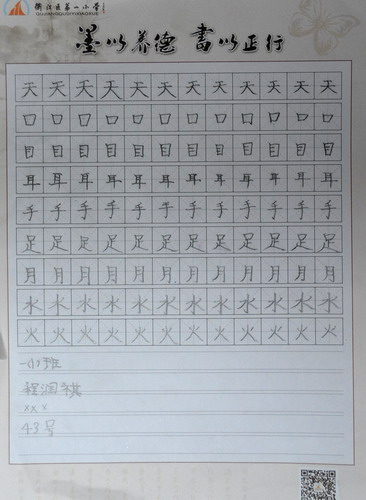 衢江区第一小学
QUJIANGQUDIYIXIAOXUE
墨以养德 書以正行
天天天天天天天天天天天天
口口口口口口口口口口口口
目目目目目目目目目目目目
耳耳耳耳耳耳耳耳耳耳耳耳
手手手手手手手手手手手手
足足足足足足足足足足足足
月月月月月月月月月月月月
水水水水水水水水水水水水
火火火火火火火火火火火火
一小班
程润祺
xxx
43号